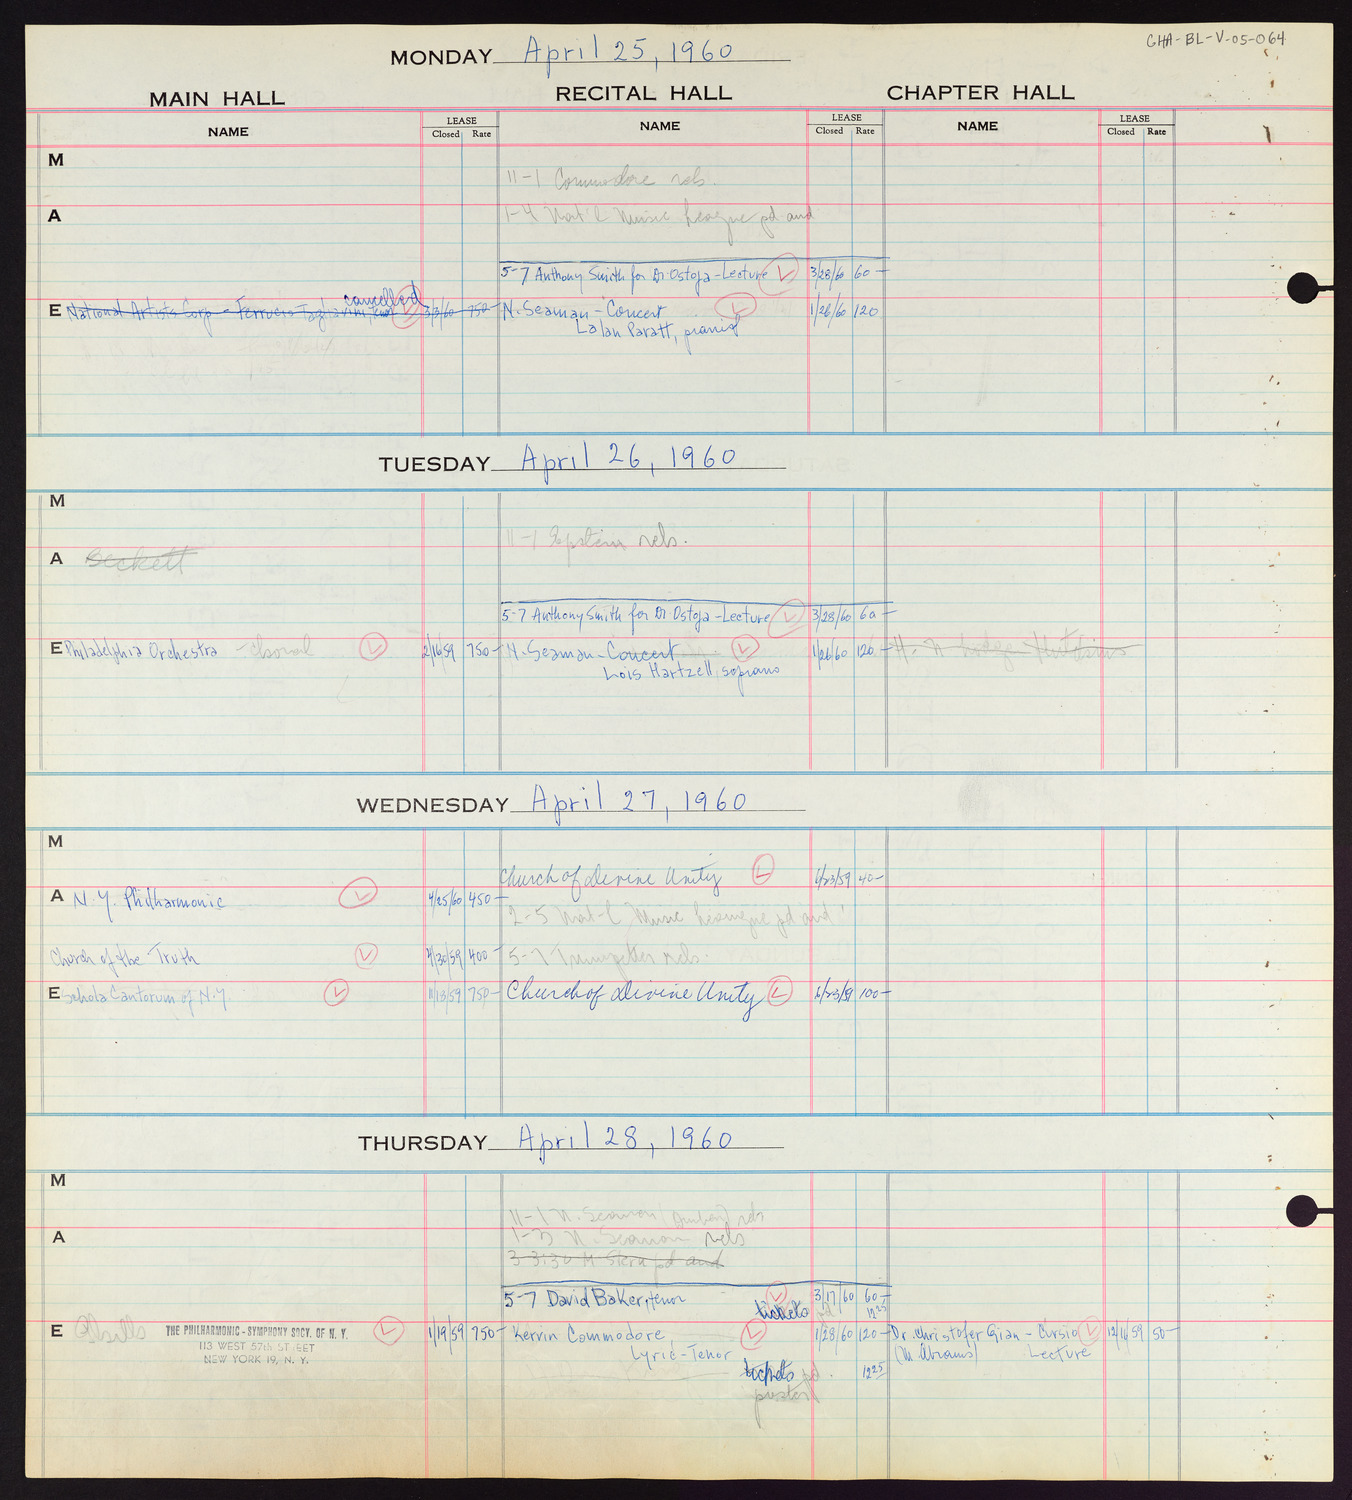 GHA-BL-V-05-064
MONDAY April 25, 1960
MAIN HALL RECITAL HALL CHAPTER HALL
NAME LEASE Closed Rate NAME LEASE Closed Rate NAME LEASE Closed Rate
M
11-1 Commodore rels.
A
1-4 Nat'l Music League pd and
5-7 Anthony Smith for Dr. Ostoja - Lecture 3/28/60 60-
cancelled
E National Artists Corp - Ferrucio Tagliavini, tenor 3/3/60 750- N. Seaman - Concert 1/26/60 120
Lalan Paratt, pianist
TUESDAY April 26, 1960
M
11-1 Epstein rels.
A Beckett
5-7 Anthony Smith for Dr Ostoja - Lecture 3/28/60 60-
E Philadelphia Orchestra - choral 2/16/59 750- N. Seaman - Concert 1/26/60 120- H. Hutchins
Lois Hartzell, soprano
WEDNESDAY April 27, 1960
M
Church of Devine Unity 6/23/59 40-
A N.Y. Philharmonic 4/25/60 450-
2-5 Nat-l Music League pd and
Church of the Truth 4/30/59 400- 5-7 rels.
E Schola Cantorum of N.Y. 11/13/59 750- Church of Devine Unity 6/23/59 100-
THURSDAY April 28, 1960
M
11-1 N. Seaman rels
A 1-3 N. Seaman rels
3-3:30 M pd and
5-7 David Baker, tenor 3/17/60 60-
tickets pd 12 25
E THE PHILHARMONIC-SYMPHONY SOCY. OF N. Y. 1/19/59 750- Kervin Commodore 1/28/60 120- Dr. Christofer Gian-Cursio 12/1/59 50-
113 WEST 57th STREET Lyric-Tenor (M. Abrams) Lecture
NEW YORK 19, N. Y.
tickets pd. 12 25
poster